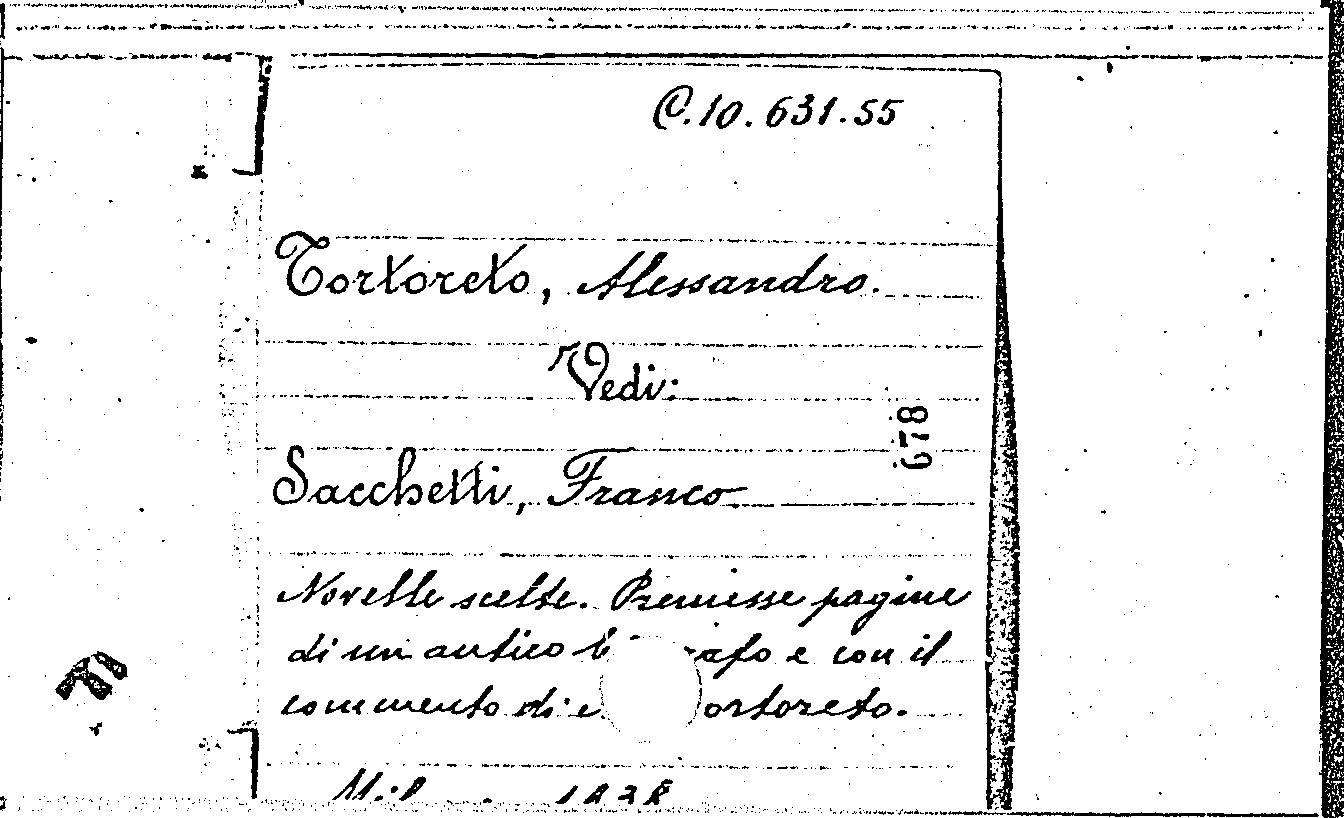 C.10.631.55
Tortoreto, Alessandro.
Vedi:
678
Sacchetti, Franco
Novelle scelte. Premesse pagine
di un antico e con il
commento di